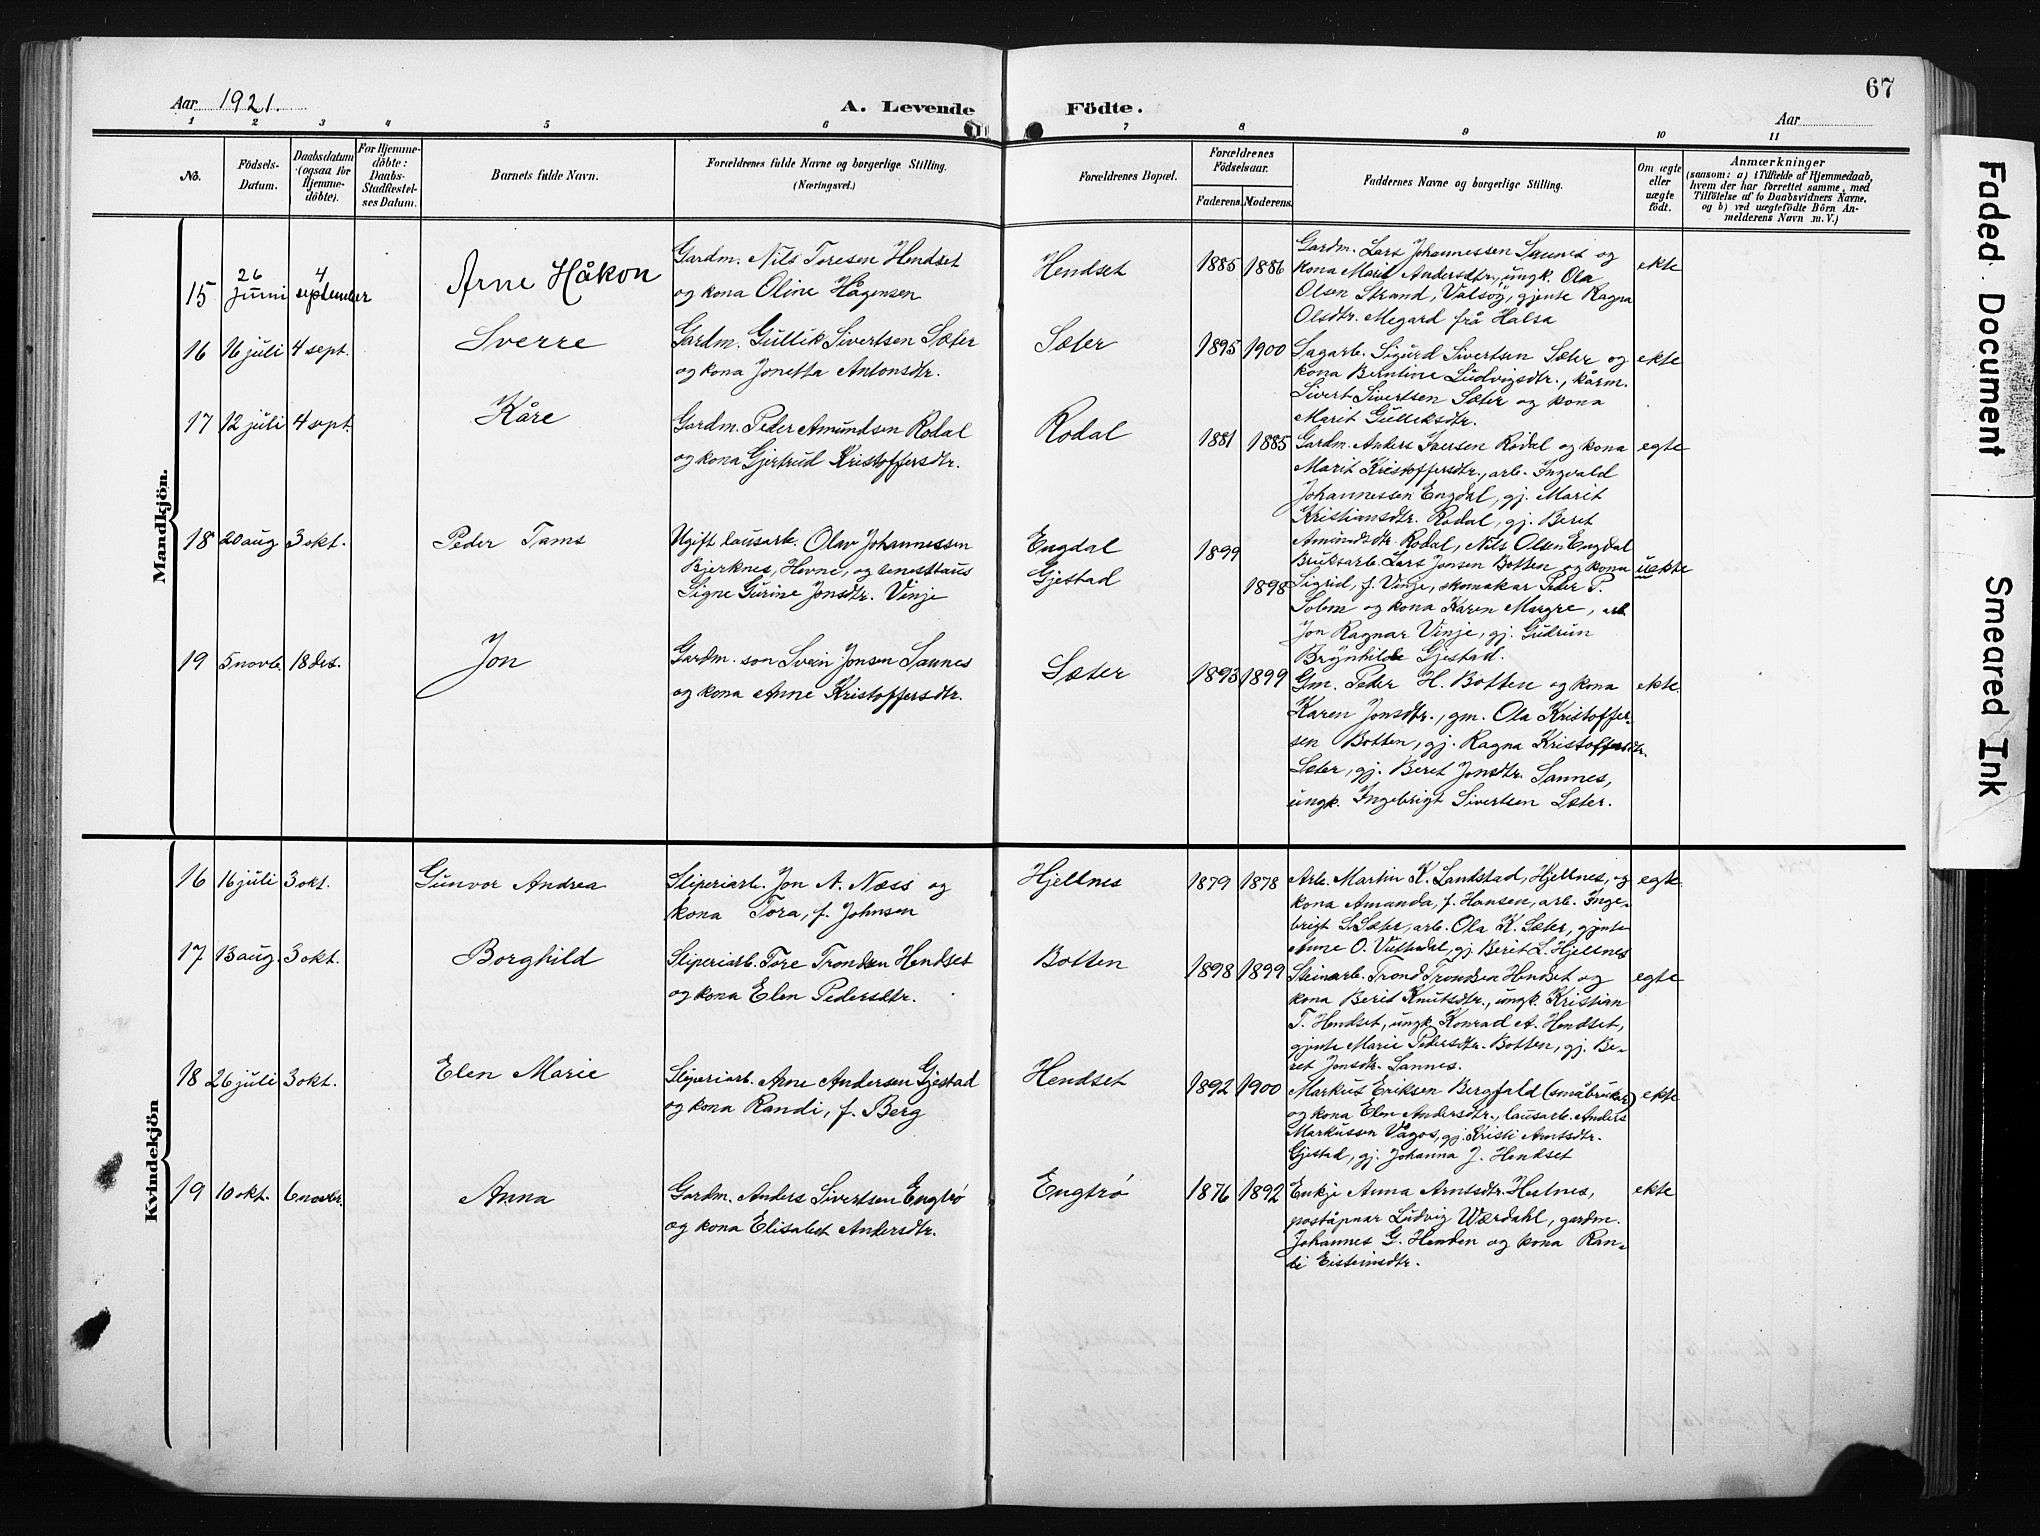 67
Aar 1921.
A. Levende Födte.
Aar
1 2 3 4 5 6 7 8 9 10 11
No.
Födsels-
Datum.
Daabsdatum
(ogsaa for
Hjemme-
döbte).
For Hjemme-
döbte:
Daabs-
Stadfæstel-
ses Datum.
Barnets fulde Navn.
Forældrenes fulde Navne og borgerlige Stilling.
(Næringsvei.)
Forældrenes Bopæl.
Forældrenes
Födselsaar.
Faderens. Moderens.
Faddernes Navne og borgerlige Stilling.
Om ægte
eller
uægte
födt.
Anmærkninger
(saasom: a) i Tilfælde af Hjemmedaab,
hvem der har forrettet samme, med
Tilföielse af to Daabsvidners Navne,
og b) ved uægtefödte Börn An-
melderens Navn m. V.)
Mandkjön.
15 26 juni 4 september
Arne Håkon
Gardm. Nils Toresen Hendset
og kona Oline Hågensen
Hendset
1885 1886
Gardm. Lars Johannessen Sannes og
kona Marit Andersdtr., ungk. Ola
Olsen Strand, Valsöy, gjente Ragna
Olsdtr. Megard frå Halsa
ekte
16 16 juli 4 sept.
Sverre
Gardm. Gullik Sivertsen Sæter
og kona Jonetta Antonsdtr.
Sæter
1895 1900
Sagarb. Sigurd Sivertsen Sæter og
kona Berntine Ludvigsdtr., kårm.
Sivert Sivertsen Sæter og kona
Marit Gulliksdtr.
ekte
17 12 juli 4 sept.
Kåre
Gardm. Peder Amundsen Rodal
og kona Gjertrud Kristoffersdtr.
Rodal
1881 1885
Gardm. Anders Iversen Rodal og kona
Marit Kristoffersdtr., arb. Ingvald
Johannessen Engdal, gj. Marit
Kristiansdtr. Rodal, gj. Beret
Amundsdtr. Rodal, Nils Olsen Engdal
egte
18 20 aug. 3 okt.
Peder Tams
Ugift lausarb. Olav Johannessen
Bjerknes, Hevne, og tenesttaus
Signe Gurine Jonsdtr. Vinje
Engdal
Gjestad
1899
1898
Bruksarb. Lars Jonsen Botten og kona
Sigrid, f. Vinje, skomakar Peder P.
Solem og kona Karen Margre, arb.
Jon Ragnar Vinje, gj. Gudrun
Brynhilde Gjestad.
uekte
19 5 novb. 18 des.
Jon
Gardm. son Svein Jonsen Sannes
og kona Anne Kristoffersdtr.
Sæter
1893 1899
Gm. Peder H. Botten og kona
Karen Jonsdtr., gm. Ola Kristoffer-
sen Botten, gj. Ragna Kristoffersdtr.
Sæter, gj. Beret Jonsdtr. Sannes,
ungk. Ingebrigt Sivertsen Sæter.
ekte.
Kvindekjön
16 16 juli 3 okt.
Gunvor Andrea
Sliperiarb. Jon A. Næss og
kona Tora, f. Johnsen
Hjellnes
1879 1878
Arb. Martin K. Landstad, Hjellnes, og
kona Amanda, f. Hansen, arb. Inge-
brigt S. Sæter, arb. Ola K. Sæter, gjente
Anne O. Vuttudal, gj. Berit L. Hjellnes
egte.
17 13 aug. 3 okt.
Borghild
Sliperiarb. Tore Trondsen Hendset
og kona Elen Pedersdtr.
Botten
1898 1899
Steinarb. Trond Trondsen Hendset og
kona Berit Knutsdtr., ungk. Kristian
T. Hendset, ungk. Konrad A. Hendset,
gjente Marie Pedersdtr. Botten, gj. Be-
ret Jonsdtr. Sannes.
egte
18 26 juli 3 okt.
Elen Marie
Sliperiarb. Arne Andersen Gjestad
og kona Randi, f. Berg
Hendset
1892 1900
Markus Eriksen Bergfald (småbruker)
og kona Elen Andersdtr., lausarb. Anders
Markussen Vågos, gj. Kristi Arntsdtr.
Gjestad, gj. Johanna J. Hendset
ekte
19 10 okt. 6 novbr.
Anna
Gardm. Anders Sivertsen Engtrö
og kona Elisabet Andersdtr.
Engtrö
1876 1892
Enkje Anna Arntsdtr. Hestnes,
poståpnar Ludvig Wærdahl, gardm.
Johannes G. Henden og kona Ran-
di Eisteinsdtr.
ekte
Faded Document
Smeared Ink